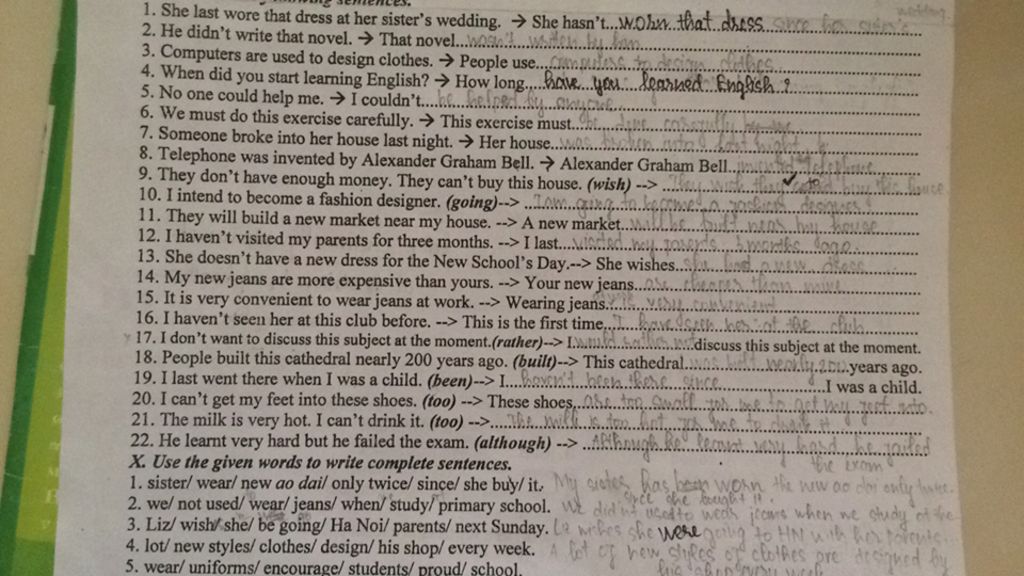 following sentences.
1. She last wore that dress at her sister's wedding. → She hasn't...worn that dress since her sister's wedding
2. He didn't write that novel. → That novel...wasn't written by him
3. Computers are used to design clothes. → People use...computers to design clothes
4. When did you start learning English? → How long...have you learned English?
5. No one could help me. → I couldn't...be helped by anyone
6. We must do this exercise carefully. → This exercise must...be done carefully by
7. Someone broke into her house last night. → Her house...was broken into last night
8. Telephone was invented by Alexander Graham Bell. → Alexander Graham Bell...invented telephone
9. They don't have enough money. They can't buy this house. (wish) --> ...They wish they could buy this house
10. I intend to become a fashion designer. (going)--> ...I am going to become a fashion designer
11. They will build a new market near my house. --> A new market...will be built near my house
12. I haven't visited my parents for three months. --> I last...visited my parents 3 months ago.
13. She doesn't have a new dress for the New School's Day.--> She wishes...she had a new dress
14. My new jeans are more expensive than yours. --> Your new jeans...are cheaper than mine
15. It is very convenient to wear jeans at work. --> Wearing jeans...is very convenient
16. I haven't seen her at this club before. --> This is the first time...I have seen her at the club
17. I don't want to discuss this subject at the moment.(rather)--> I...would rather not discuss this subject at the moment.
18. People built this cathedral nearly 200 years ago. (built)--> This cathedral...was built nearly 200 years ago.
19. I last went there when I was a child. (been)--> I...haven't been there since...I was a child.
20. I can't get my feet into these shoes. (too) --> These shoes...are too small for me to get my feet into.
21. The milk is very hot. I can't drink it. (too) -->...The milk is too hot for me to drink it
22. He learnt very hard but he failed the exam. (although) --> ...Although he learnt very hard he failed
the exam
X. Use the given words to write complete sentences.
1. sister/ wear/ new ao dai/ only twice/ since/ she buy/ it. My sister has been worn the new ao dai only twice
since she bought it.
2. we/ not used/ wear/ jeans/ when/ study/ primary school. We didn't used to wear jeans when we study at the
3. Liz/ wish/ she/ be going/ Ha Noi/ parents/ next Sunday. Liz wishes she were going to HN with her parents
4. lot/ new styles/ clothes/ design/ his shop/ every week. A lot of new styles of clothes are designed by
his shop every week
5. wear/ uniforms/ encourage/ students/ proud/ school.